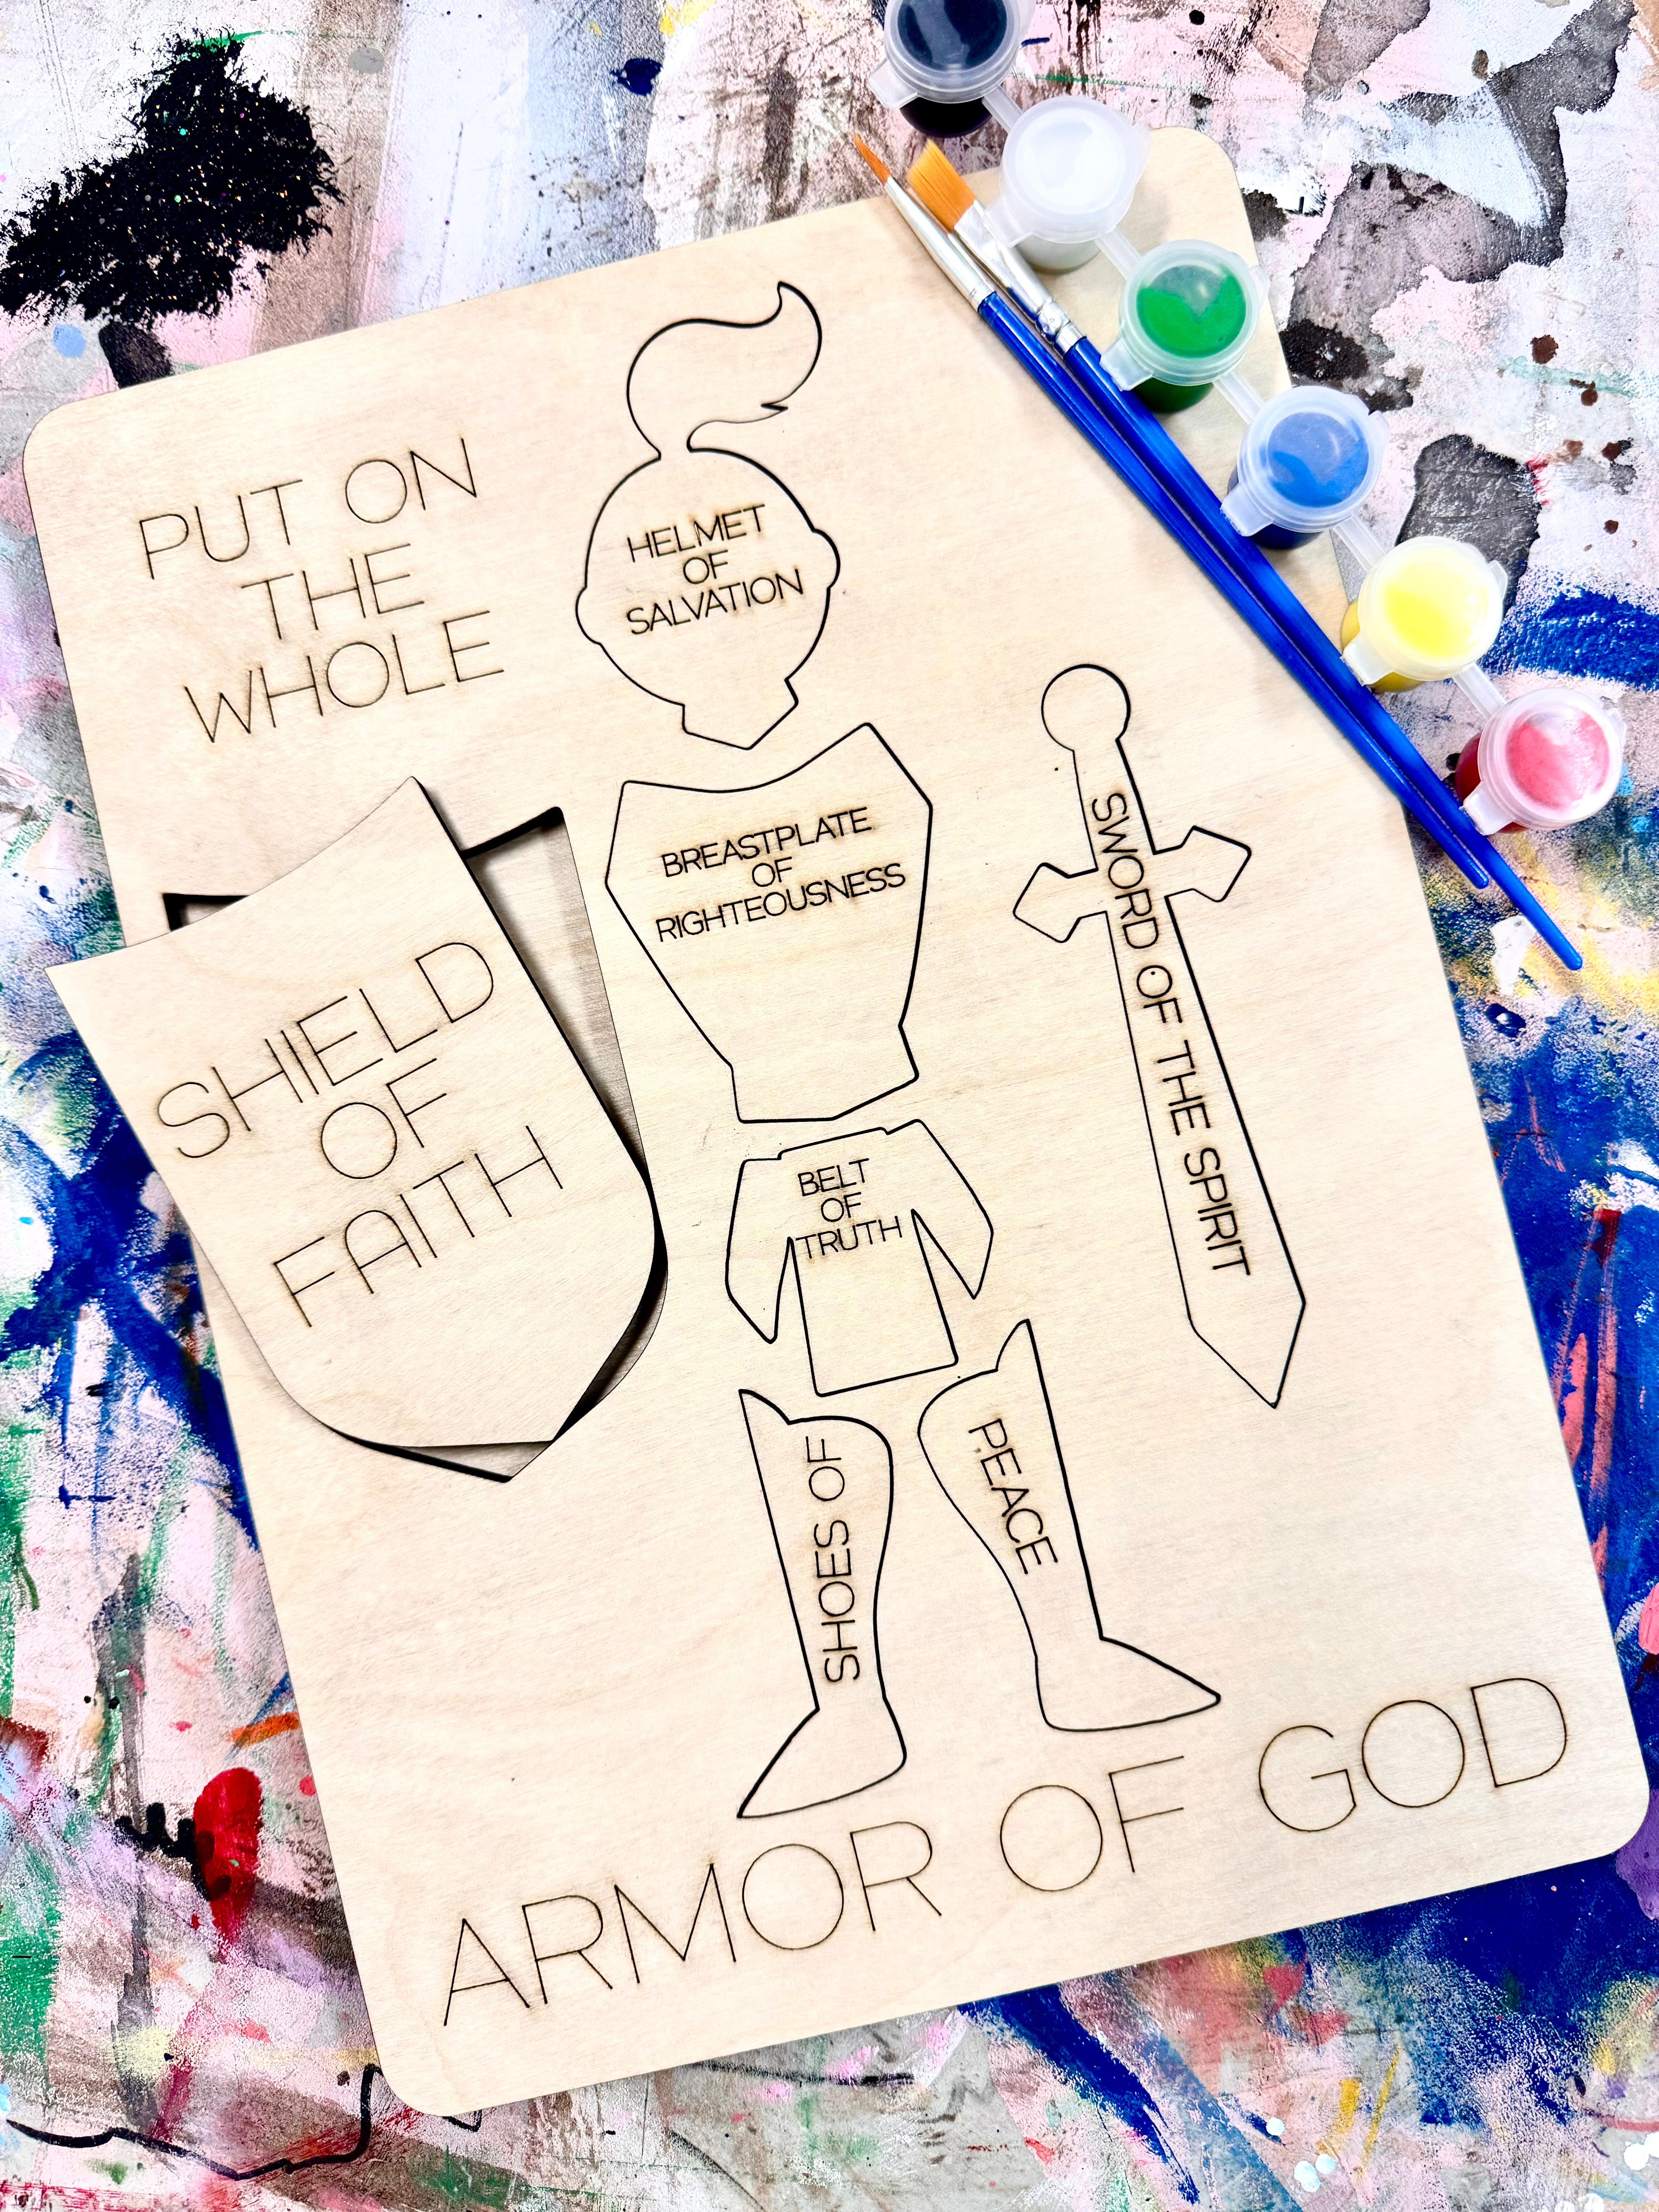 PUT ON
THE
WHOLE
HELMET
OF
SALVATION
BREASTPLATE
OF
RIGHTEOUSNESS
SWORD OF THE SPIRIT
SHIELD
OF
FAITH
BELT
OF
TRUTH
SHOES OF
PEACE
ARMOR OF GOD